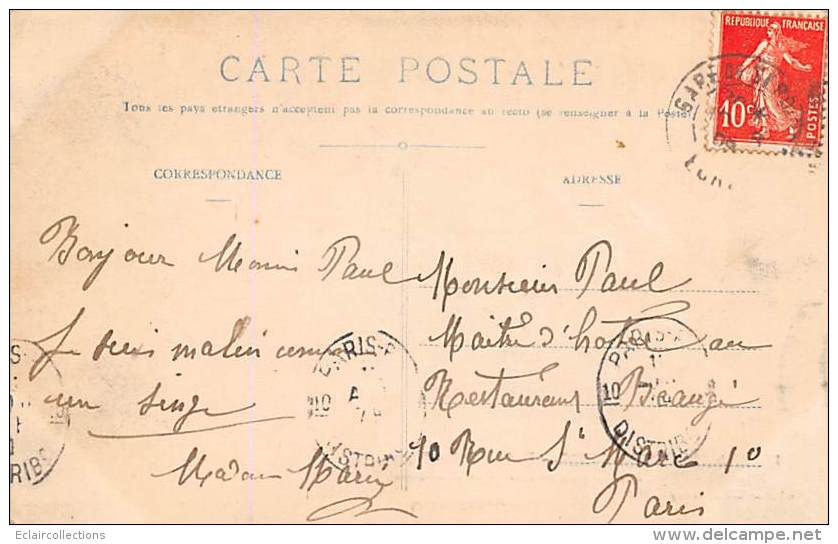 RÉPUBLIQUE FRANÇAISE
10c
POSTES
CARTE POSTALE
Tous les pays étrangers n'acceptent pas la correspondance au recto (se renseigner à la Poste)
CORRESPONDANCE
ADRESSE
Bonjour Paul
Je suis malin comme
un singe
Marie
Monsieur Paul
Maitre d'hotel au
Restaurant
10 Rue St Marc 10
Paris
GARE
PARIS
10
DISTRIB
PARIS
10
DISTRIB
Eclaircollections
delcampe.net